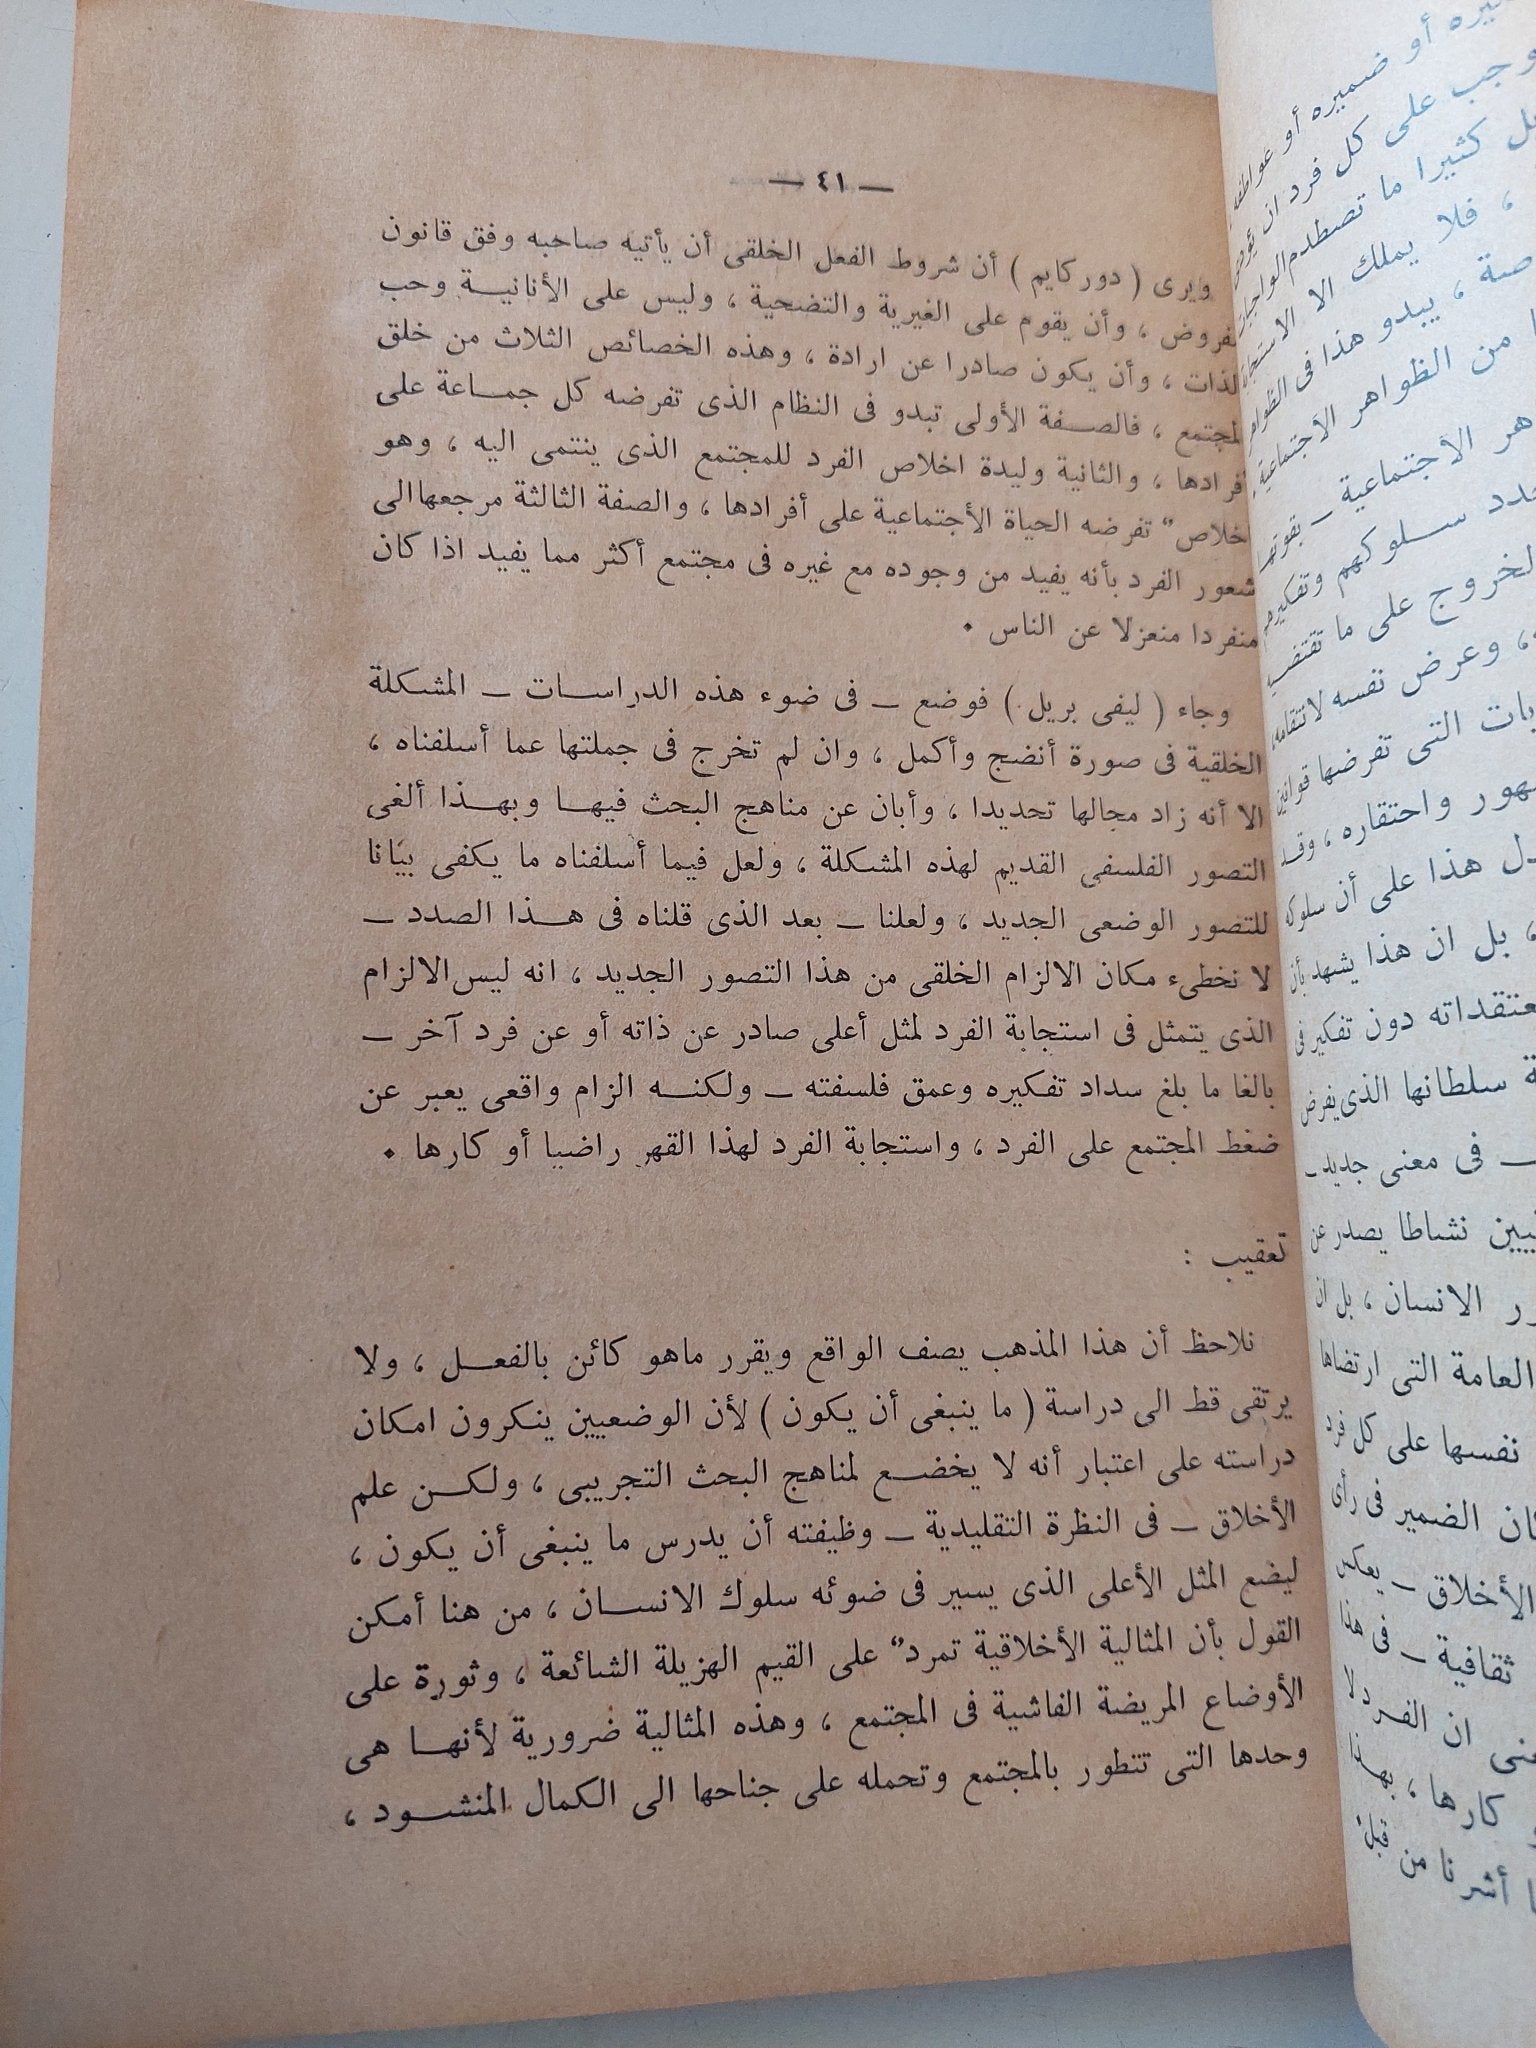 — ٤١ —
ويرى ( دوركايم ) أن شروط الفعل الخلقى أن يأتيه صاحبه وفق قانون
مفروض ، وأن يقوم على الغيرية والتضحية ، وليس على الأنانيـة وحب
الذات ، وأن يكون صادرا عن ارادة ، وهذه الخصائص الثلاث من خلق
المجتمع ، فالصـفة الأولى تبدو فى النظام الذى تفرضه كل جمـاعة على
أفرادها ، والثانية وليدة اخلاص الفرد للمجتمع الذى ينتمى اليه ، وهو
اخلاصٌ تفرضه الحياة الأجتماعية على أفرادها ، والصفة الثالثة مرجعها الى
شعور الفرد بأنه يفيد من وجوده مع غيره فى مجتمع أكثر مما يفيد اذا كان
منفردا منعزلا عن الناس ٠
وجاء ( ليفى بريل ) فوضع — فى ضوء هذه الدراسـات — المشـكلة
الخلقية فى صورة أنضج وأكمل ، وان لم تخرج فى جملتها عما أسلفناه ،
الا أنه زاد مجالها تحديدا ، وأبان عن مناهج البحث فيهـا وبهـذا ألغى
التصور الفلسفى القديم لهذه المشكلة ، ولعل فيما أسلفناه ما يكفى بيَانا
للتصور الوضعى الجديد ، ولعلنا — بعد الذى قلناه فى هـذا الصدد —
لا نخطىء مكان الالزام الخلقى من هذا التصور الجديد ، انه ليس الالزام
الذى يتمثل فى استجابة الفرد لمثل أعلى صادر عن ذاته أو عن فرد آخر —
بالغا ما بلغ سداد تفكيره وعمق فلسفته — ولكنـه الزام واقعى يعبر عن
ضغط المجتمع على الفرد ، واستجابة الفرد لهذا القهر راضيا أو كارها ٠
تعقيب :
نلاحظ أن هذا المذهب يصف الواقع ويقرر ماهو كائن بالفعـل ، ولا
يرتقى قط الى دراسة ( ما ينبغى أن يكون ) لأن الوضعيين ينكرون امكان
دراسته على اعتبار أنه لا يخضـع لمناهج البحث التجريبى ، ولكـن علم
الأخلاق — فى النظرة التقليدية — وظيفته أن يدرس ما ينبغى أن يكون ،
ليضع المثل الأعلى الذى يسير فى ضوئه سلوك الانسـان ، من هنا أمكن
القول بأن المثالية الأخلاقية تمردٌ على القيم الهزيلة الشائعة ، وثورة على
الأوضاع المريضة الفاشية فى المجتمع ، وهذه المثالية ضرورية لأنهـا هى
وحدها التى تتطور بالمجتمع وتحمله على جناحها الى الكمال المنشـود ،
أو ضميره أو عواطفه
وجب على كل فرد ان
كثيرا ما تصطدم الواجبات
، فلا يملك الا
، يبدو هذا فى
من الظواهر الأجتماعية ،
الاجتماعية — بقوتها
سـلوكهم وتفكيرهم
الخروج على ما تقتضيه
، وعرض نفسه لانتقامه
التى تفرضها قوانين
واحتقاره ، وقد
هذا على أن سلوكه
، بل ان هذا يشهد بأن
دون تفكير فى
سلطانها الذى يفرض
— فى معنى جديد —
نشاطا يصدر عن
الانسان ، بل ان
العامة التى ارتضاها
نفسها على كل فرد
الضمير فى رأى
الأخلاق — يعكس
ثقافية — فى هذا
ان الفـرد لا
كارها ، بهـذا
أشرنا من قبل